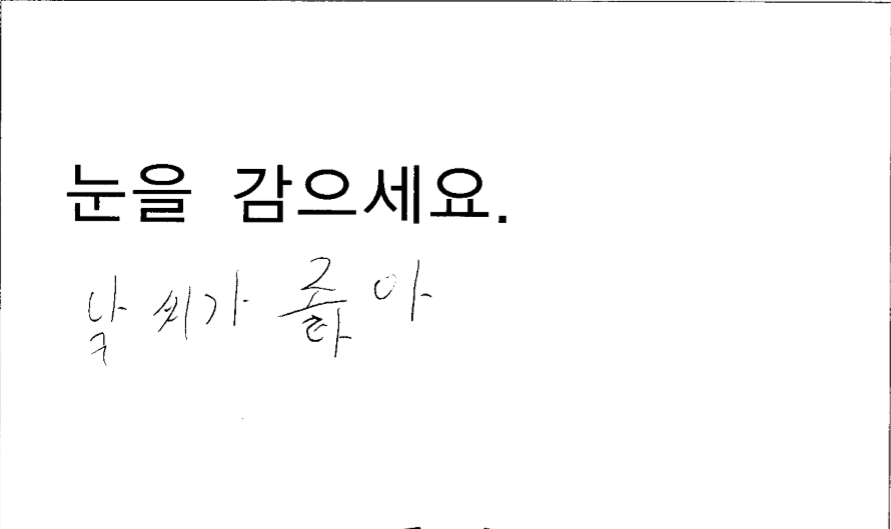 눈을 감으세요.
낙씨가 좋아